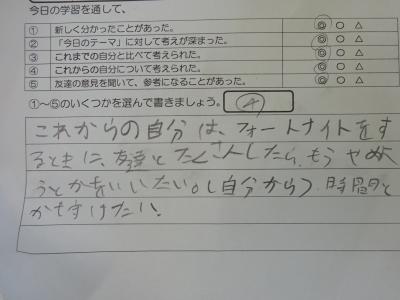 今日の学習を通して、
① 新しく分かったことがあった。 ◎ ○ △
② 「今日のテーマ」に対して考えが深まった。 ◎ ○ △
③ これまでの自分と比べて考えられた。 ◎ ○ △
④ これからの自分について考えられた。 ◎ ○ △
⑤ 友達の意見を聞いて、参考になることがあった。 ◎ ○ △
①～⑤のいくつかを選んで書きましょう。 ④
これからの自分は、フォートナイトをす
るときに、友達とたくさんしたら、もうやめよ
うとかをいいたい。(自分から)時間のと
かもすけたい。